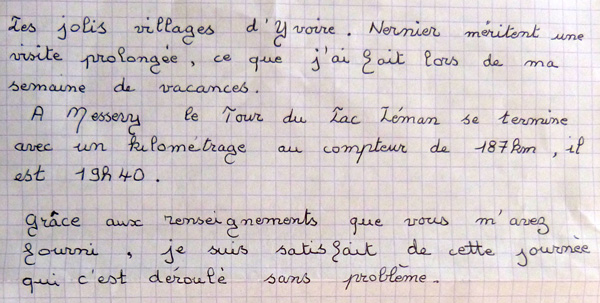 Les jolis villages d'Yvoire. Nernier méritent une
visite prolongée, ce que j'ai fait lors de ma
semaine de vacances.
A Messery le Tour du Lac Léman se termine
avec un kilométrage au compteur de 187km, il
est 19h40.
Grâce aux renseignements que vous m'avez
fourni, je suis satisfait de cette journée
qui c'est déroulé sans problème.